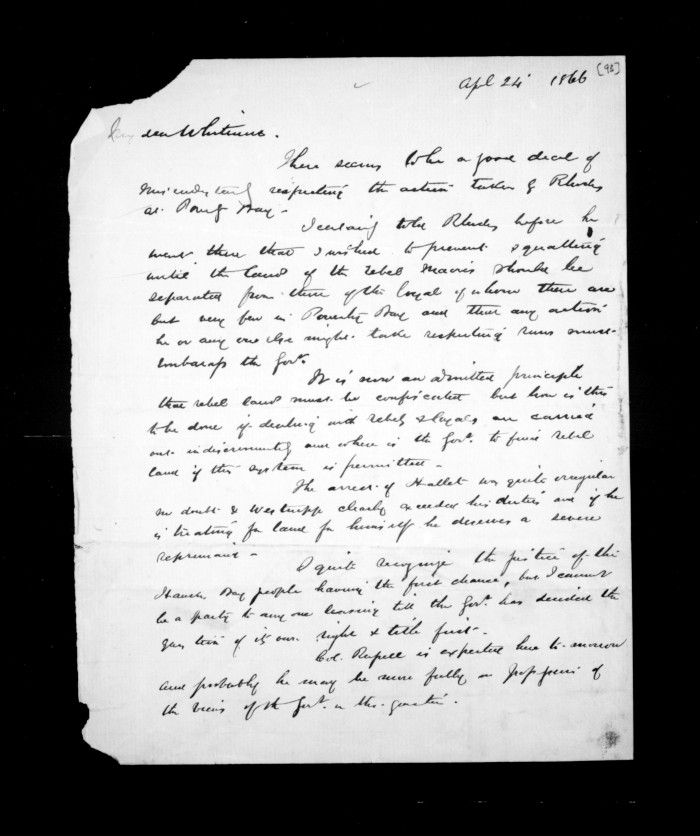 [93]
Apl 24 1866
My dear Whitmore.
There seems to be a good deal of
misunderstanding respecting the action taken by Rhodes
at Povy Bay -
I certainly told Rhodes before he
went there that I wished to prevent squatting
until the land of the rebel Maoris should be
separated from those of the loyal of whom there are
but very few in Poverty Bay and that any action
he or any one else might take respecting runs must
embarass the Govt.
It is now an admitted principle
that rebel land must be confiscated but how is this
to be done if dealing with rebels & loyals are carried
out indiscriminately and where is the Govt. to find rebel
land if this system is permitted -
The arrest of Hallet was quite irregular
no doubt & Westrupp clearly exceeded his duties and if he
is treating for land for himself he deserves a severe
reprimand -
I quite recognize the justice of the
Hawkes Bay people having the first chance, but I cannot
be a party to any one leasing till the Govt. has decided the
question of its own right & title first -
Col. Russell is expected here to-morrow
and probably he may be more fully in possession of
the views of the Govt. on this question.